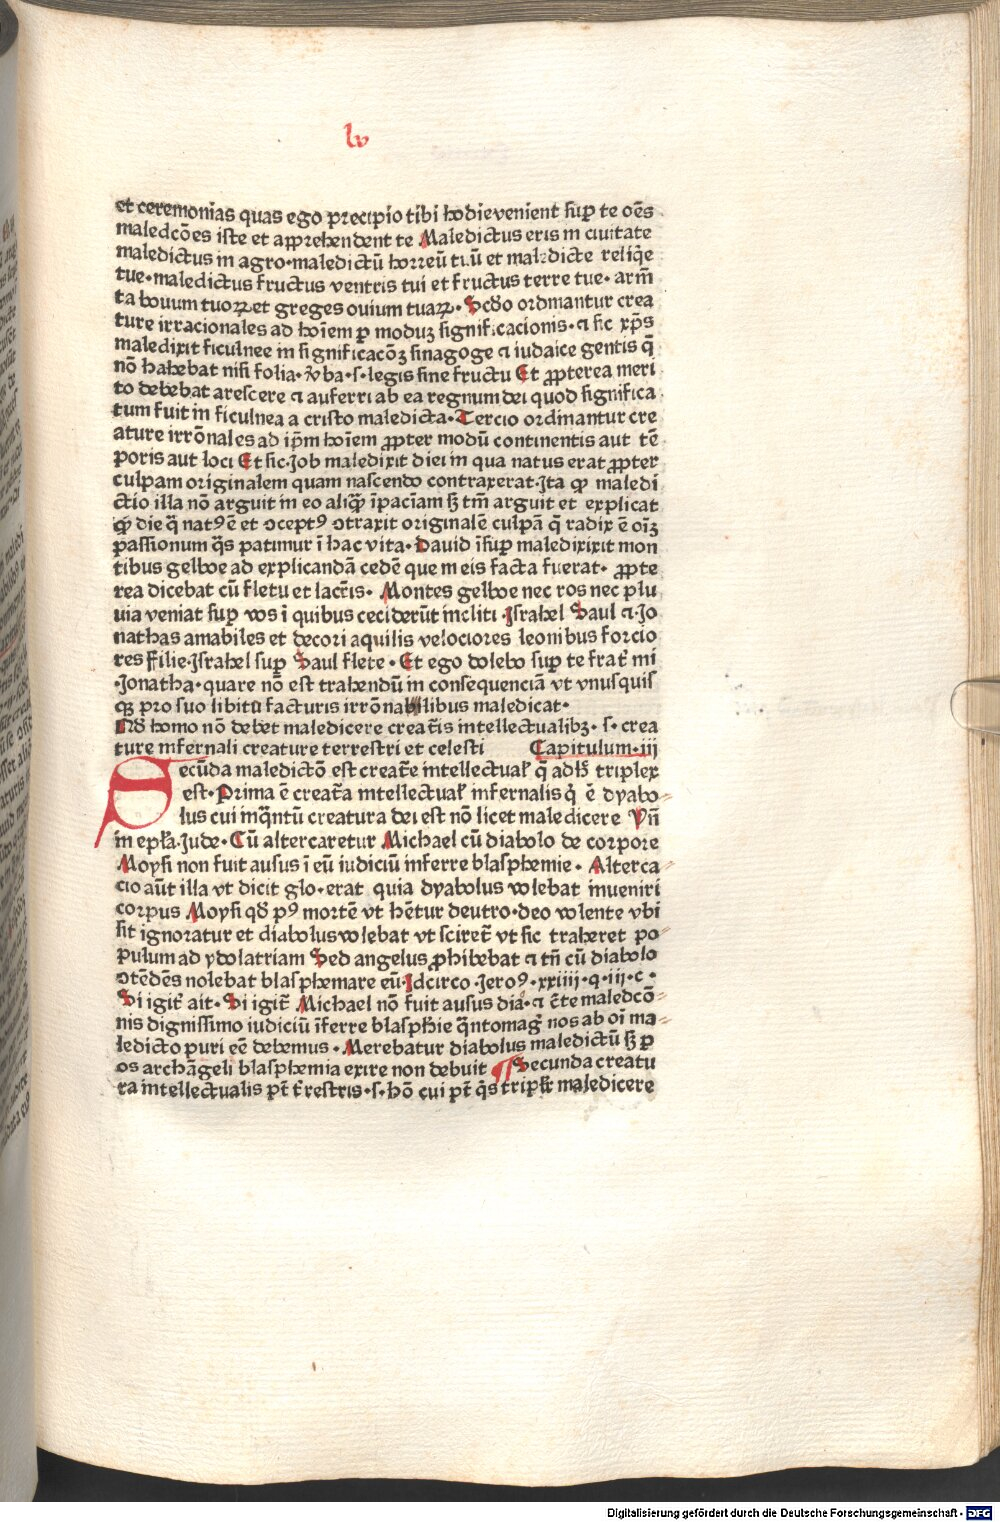 lv
et ceremonias quas ego precipio tibi hodie venient suꝑ te oēs
maledcōes iste et apprehendent te Maledictus eris in ciuitate
maledictus in agro·maledictū horreū tuū et maledicte reliq̄e
tue·maledictus fructus ventris tui et fructus terre tue·arm̄
ta bouum tuoꝝ et greges ouium tuaꝝ· Scd̄o ordinantur crea
ture irracionales ad hoīem ꝑ moduꝫ significacionis·⁊ sic xp̄s
maledixit ficulnee in significacōꝫ sinagoge ⁊ iudaice gentis q̄
nō habebat nisi folia·v̄ba·s·legis sine fructu Et ꝓpterea meri
to debebat arescere ⁊ auferri ab ea regnum dei quod significa
tum fuit in ficulnea a cristo maledicta·Tercio ordinantur cre
ature irrōnales ad ip̄m hoīem ꝓpter modū continentis aut tē
poris aut loci Et sic·Job maledixit diei in qua natus erat ꝓpter
culpam originalem quam nascendo contraxerat·Ita ꝙ maledi
ctio illa nō arguit in eo aliq̄ꝫ īpaciam sꝫ tm̄ arguit et explicat
ꝙ die q̄ natꝰ ē et ꝯceptꝰ ꝯtraxit originalē culpā q̄ radix ē oīꝫ
passionum q̄s patimur ī hac vita·Dauid īsuꝑ maledixixit mon
tibus gelboe ad explicandā cedē que in eis facta fuerat· ꝓpte
rea dicebat cū fletu et lacr̄is· Montes gelboe nec ros nec plu
uia veniat suꝑ vos ī quibus ceciderūt incliti Israhel Saul ⁊ Jo
nathas amabiles et decori aquilis velociores leonibus forcio
res filie·Israhel suꝑ Saul flete·Et ego dolebo suꝑ te frat̄ mi
·Jonatha·quare nō est trahendū in consequenciā vt vnusquis
qꝫ pro suo libitu facturis irrōnabilibus maledicat·
Qd̄ homo nō debet maledicere creat̄is intellectualibꝫ·s·crea
ture infernali creature terrestri et celesti Capitulum·iii
Secūda maledictō est creat̄e intellectual̄ q̄ adhꝰ triplex
est·Prima ē creat̄a intellectual̄ infernalis q̇ ē dyabo
lus cui inq̄ntū creatura dei est nō licet maledicere Vn̄
in epl̄a·Jude·Cū altercaretur Michael cū diabolo de corpore
Moysi non fuit ausus ī eū iudiciū inferre blasphemie·Alterca
cio aūt illa vt dicit glo·erat quia dyabolus volebat inueniri
corpus Moysi qd̄ pꝰ mortē vt hētur deutro·deo volente vbi
sit ignoratur et diabolus volebat vt sciret̄ vt sic traheret po
pulum ad ydolatriam Sed angelus ꝓhibebat ⁊ tn̄ cū diabolo
ꝯtēdēs nolebat blasphemare eū·Idcirco·Jeroꝰ·xxiiii·q·iii·c·
Si igit̄ ait·Si igit̄ Michael nō fuit ausus dia·⁊ c̄te maledcō
nis dignissimo iudiciū īferre blasph̄ie q̄ntomag̊ nos ab oī ma
ledicto puri eē debemus·Merebatur diabolus maledictū sꝫ ꝑ
os archāgeli blasphemia exire non debuit Secunda creatu
ra intellectualis pt̄ t̄restris·s·hō cui pt̄ q̄s tripl̄r maledicere
Digitalisierung gefördert durch die Deutsche Forschungsgemeinschaft - DFG